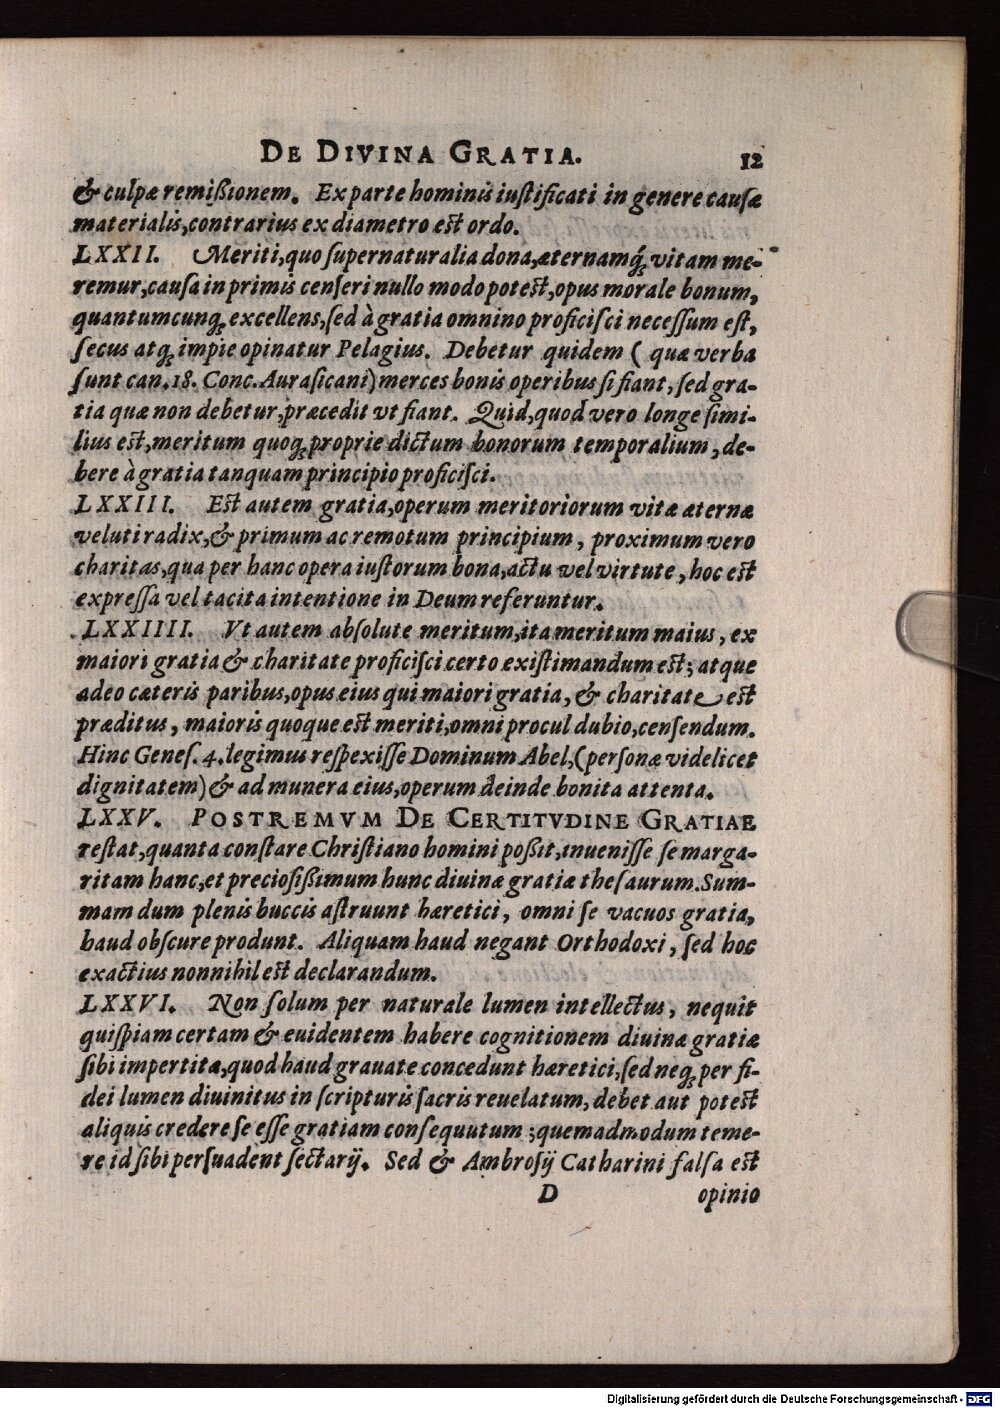 DE DIVINA GRATIA. 12
& culpæ remißionem. Ex parte hominis iustificati in genere causæ
materialis, contrarius ex diametro est ordo.
LXXII. Meriti, quo supernaturalia dona, æternamq́; vitam me-
remur, causa inprimis censeri nullo modo potest, opus morale bonum,
quantumcunq; excellens, sed à gratia omnino proficisci necessum est,
secus atq; impie opinatur Pelagius. Debetur quidem ( quæ verba
sunt can. 18. Conc. Aurasicani) merces bonis operibus si fiant, sed gra-
tia quæ non debetur, præcedit vt fiant. Quid, quod vero longe simi-
lius est, meritum quoq; proprie dictum bonorum temporalium, de-
bere à gratia tanquam principio proficisci.
LXXIII. Est autem gratia, operum meritoriorum vitæ æternæ
veluti radix, & primum ac remotum principium, proximum vero
charitas, qua per hanc opera iustorum bona, actu vel virtute, hoc est
expressa vel tacita intentione in Deum referuntur.
LXXIIII. Vt autem absolute meritum, ita meritum maius, ex
maiori gratia & charitate proficisci certo existimandum est; atque
adeo cæteris paribus, opus eius qui maiori gratia, & charitate est
præditus, maioris quoque est meriti, omni procul dubio, censendum.
Hinc Genes. 4. legimus respexisse Dominum Abel, (personæ videlicet
dignitatem) & ad munera eius, operum deinde bonita attenta.
LXXV. POSTREMVM DE CERTITVDINE GRATIAE
restat, quanta constare Christiano homini poßit, inuenisse se marga-
ritam hanc, et preciosißimum hunc diuinæ gratiæ thesaurum. Sum-
mam dum plenis buccis astruunt hæretici, omni se vacuos gratia,
haud obscure produnt. Aliquam haud negant Orthodoxi, sed hoc
exactius nonnihil est declarandum.
LXXVI. Non solum per naturale lumen intellectus, nequit
quispiam certam & euidentem habere cognitionem diuinæ gratiæ
sibi impertitæ, quod haud grauate concedunt hæretici, sed neq; per fi-
dei lumen diuinitus in scripturis sacris reuelatum, debet aut potest
aliquis credere se esse gratiam consequutum; quemadmodum teme-
re id sibi persuadent sectarij. Sed & Ambrosij Catharini falsa est
D opinio
Digitalisierung gefördert durch die Deutsche Forschungsgemeinschaft - DFG